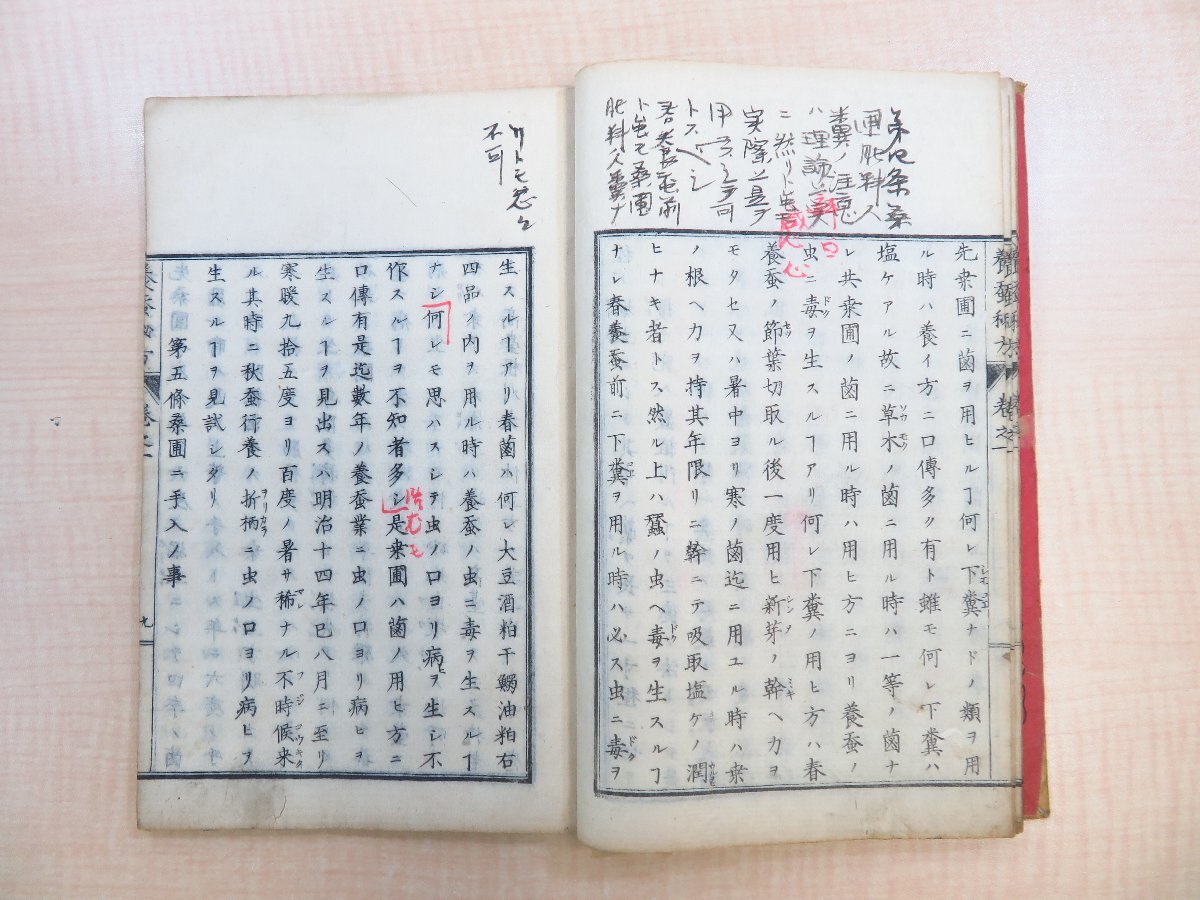 先桒圃ニ菌ヲ用ヒルヿ何レ下糞ナドノ類ヲ用
ル時ハ養イ方ニ口傳多ク有ト雖モ何レ下糞ハ
塩ケアル故ニ草木ノ菌ニ用ル時ハ一等ノ菌ナ
レ共桒圃ノ菌ニ用ル時ハ用ヒ方ニヨリ養蚕ノ
虫ニ毒ヲ生スルヿアリ何レ下糞ノ用ヒ方ハ春
養蚕ノ節葉切取ル後一度用ヒ新芽ノ幹ヘカヲ
モタセ又ハ暑中ヨリ寒ノ菌迄ニ用ユル時ハ桒
ノ根ヘカヲ持其年限リニ幹ニテ吸取塩ケノ潤
ヒナキ者トス然ル上ハ蚕ノ虫ヘ毒ヲ生スルヿ
ナレ春養蚕前ニ下糞ヲ用ル時ハ必ス虫ニ毒ヲ
生スルヿアリ春菌ハ何レ大豆酒粕干鰯油粕右
四品ノ内ヲ用ル時ハ養蚕ノ虫ニ毒ヲ生スルヿ
ナシ何レモ思ハスシテ虫ノ口ヨリ病ヲ生シ不
作スルヿヲ不知者多シ是桒圃ハ菌ノ用ヒ方ニ
口傳有是迄數年ノ養蚕業ニ虫ノ口ヨリ病ヒヲ
生スルヿヲ見出スハ明治十四年巳八月ニ至リ
寒暖九拾五度ヨリ百度ノ暑サ稀ナル不時候来
ル其時ニ秋蚕行養ノ折柄ニ虫ノ口ヨリ病ヒヲ
生スルヿヲ見試シタリ
第五條桑圃ニ手入ノ事
第四条桑
圃肥料人
糞ノ注意
ハ理論上真
ニ然リト虽モ
実際上是ヲ
用ヲ可
トスヘシ
春養蚕前
ト虽モ桑圃
肥料人糞ナ
リトモ
不可
感心
卷之一
九